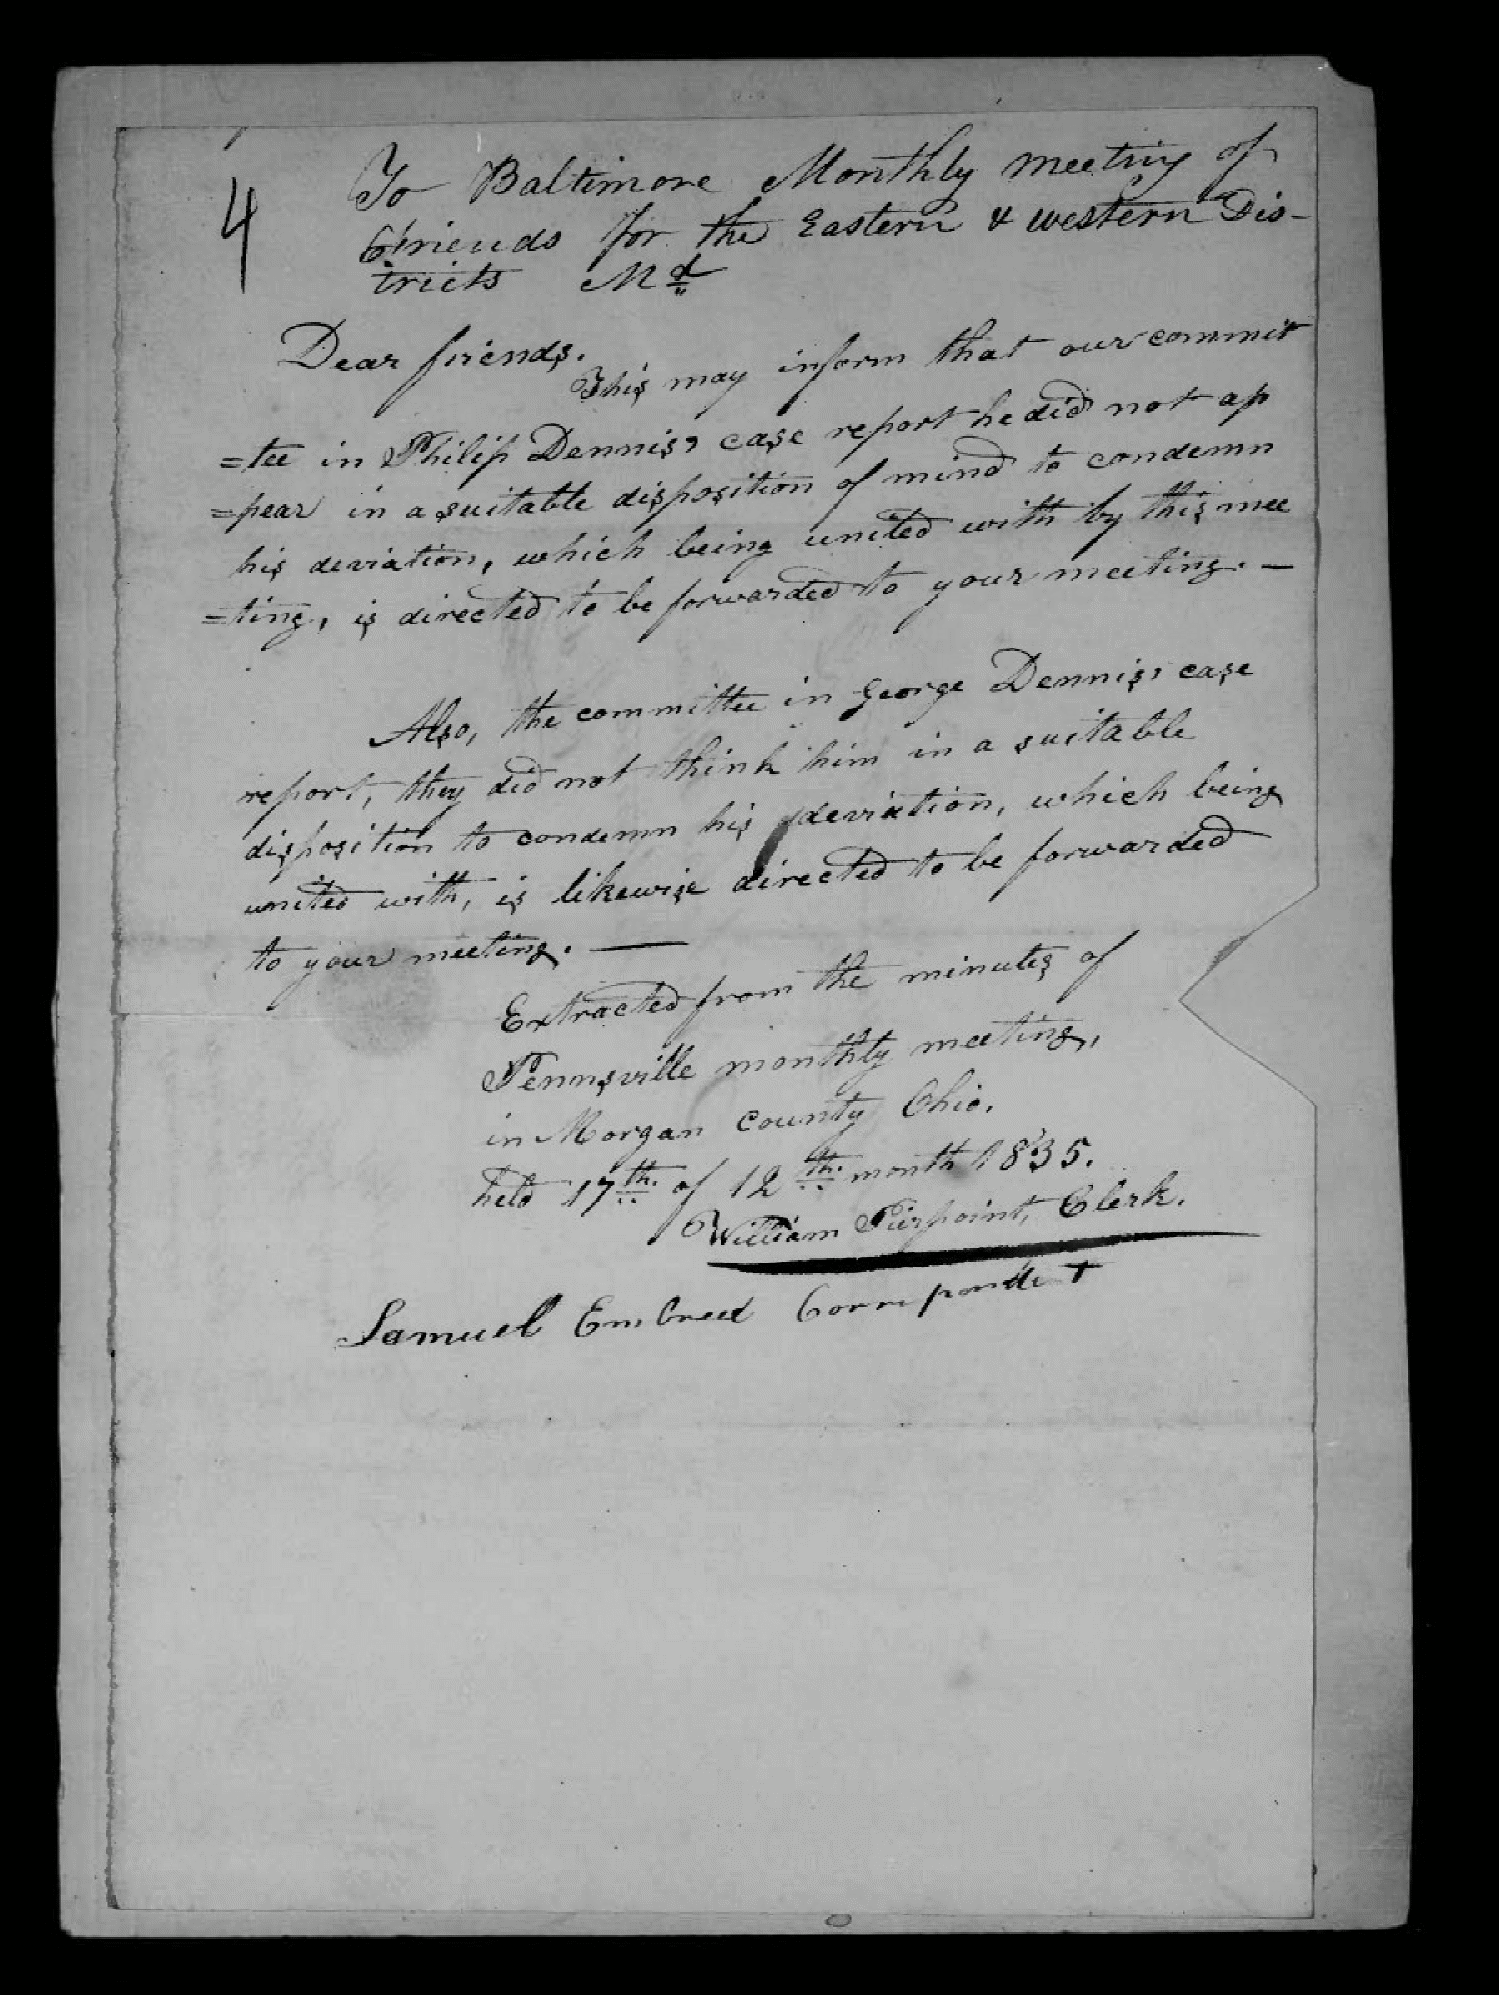 4
To Baltimore Monthly meeting of
Friends for the Eastern & western Dis-
tricts Md
Dear friends.
This may inform that our commit
=tee in Philip Dennis's case report he did not ap
=pear in a suitable disposition of mind to condemn
his deviation, which being united with by this mee
=ting, is directed to be forwarded to your meeting. —
Also, the committee in George Dennis's case
report, they did not think him in a suitable
disposition to condemn his deviation, which being
united with, is likewise directed to be forwarded
to your meeting. —
Extracted from the minutes of
Pennsville monthly meeting,
in Morgan county Ohio.
held 17th. of 12th. month 1835.
William Pierpoint, Clerk.
Samuel Embree Correspondent